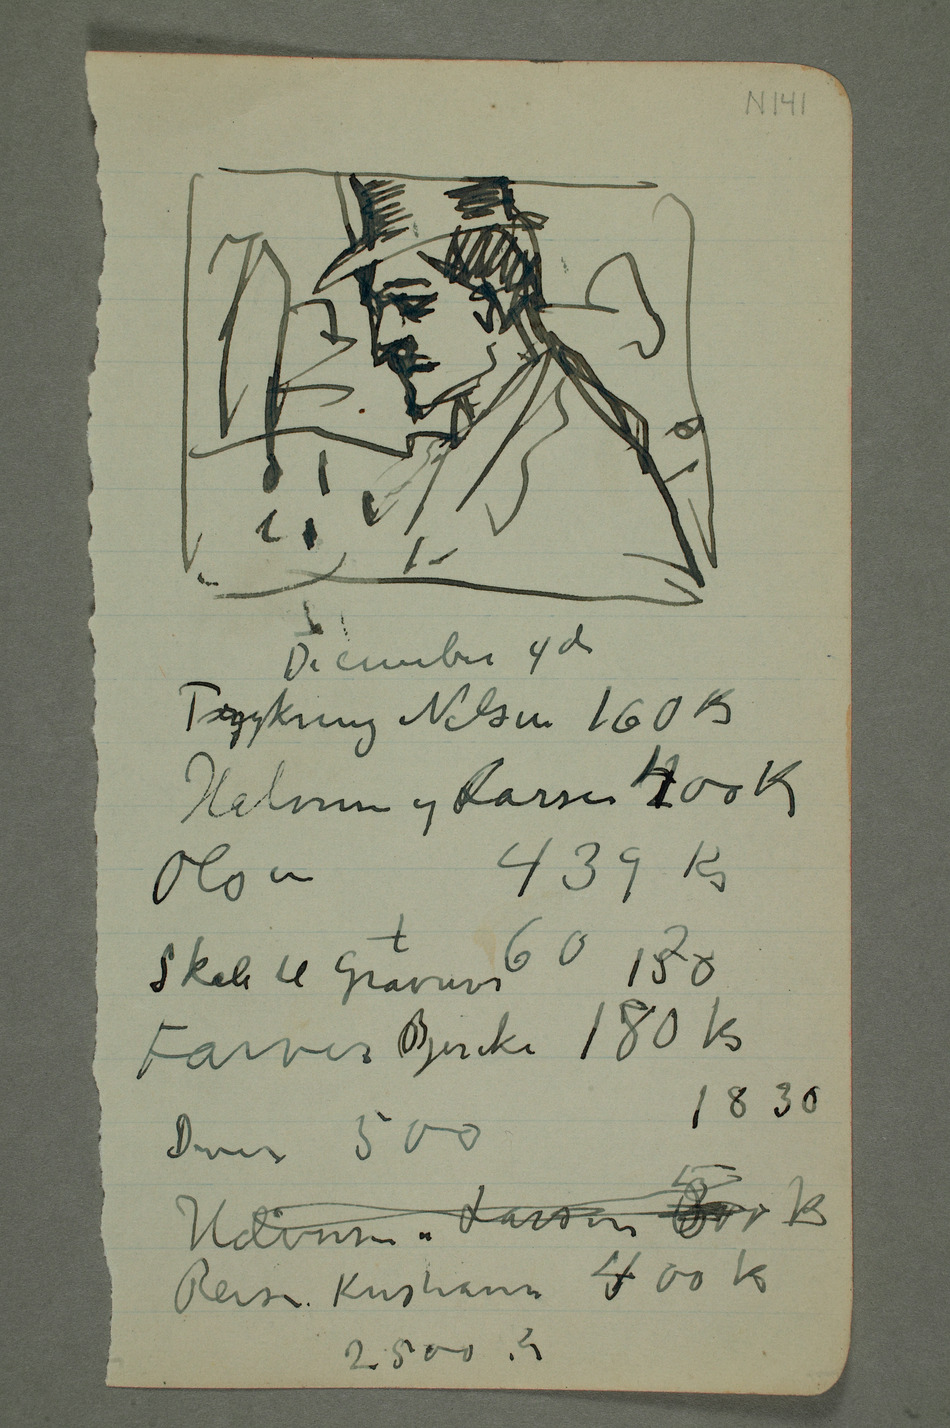 N 141
December 4d
Trykning Nelsen 160 Kr
Halvorsen og Larsen 400 Kr
Olsen 439 Kr
Skat til Gravører 60 130
Farver Bjercke 180 Kr
1830
Divers 500
Halvorsen " Larsen 500 Kr
Reise Kristiania 400 Kr
2500 Kr